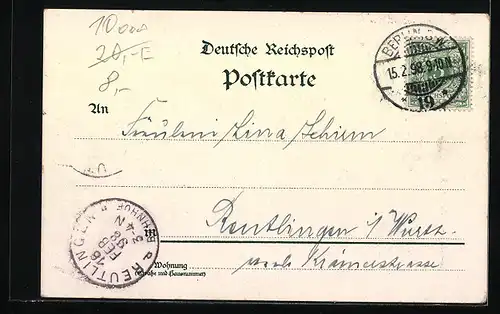 10000
20,-E
8,-
Deutsche Reichspost
Postkarte
BERLIN S.W.
15.2.98.9-10N.
* 19 *
An
Fräulein Lina Schirm
in Reutlingen i/Württ.
REUTLINGEN BAHNHOF
16 FEB 98
3-4 N
Wohnung
(Straße und Hausnummer)
Krämerstrasse